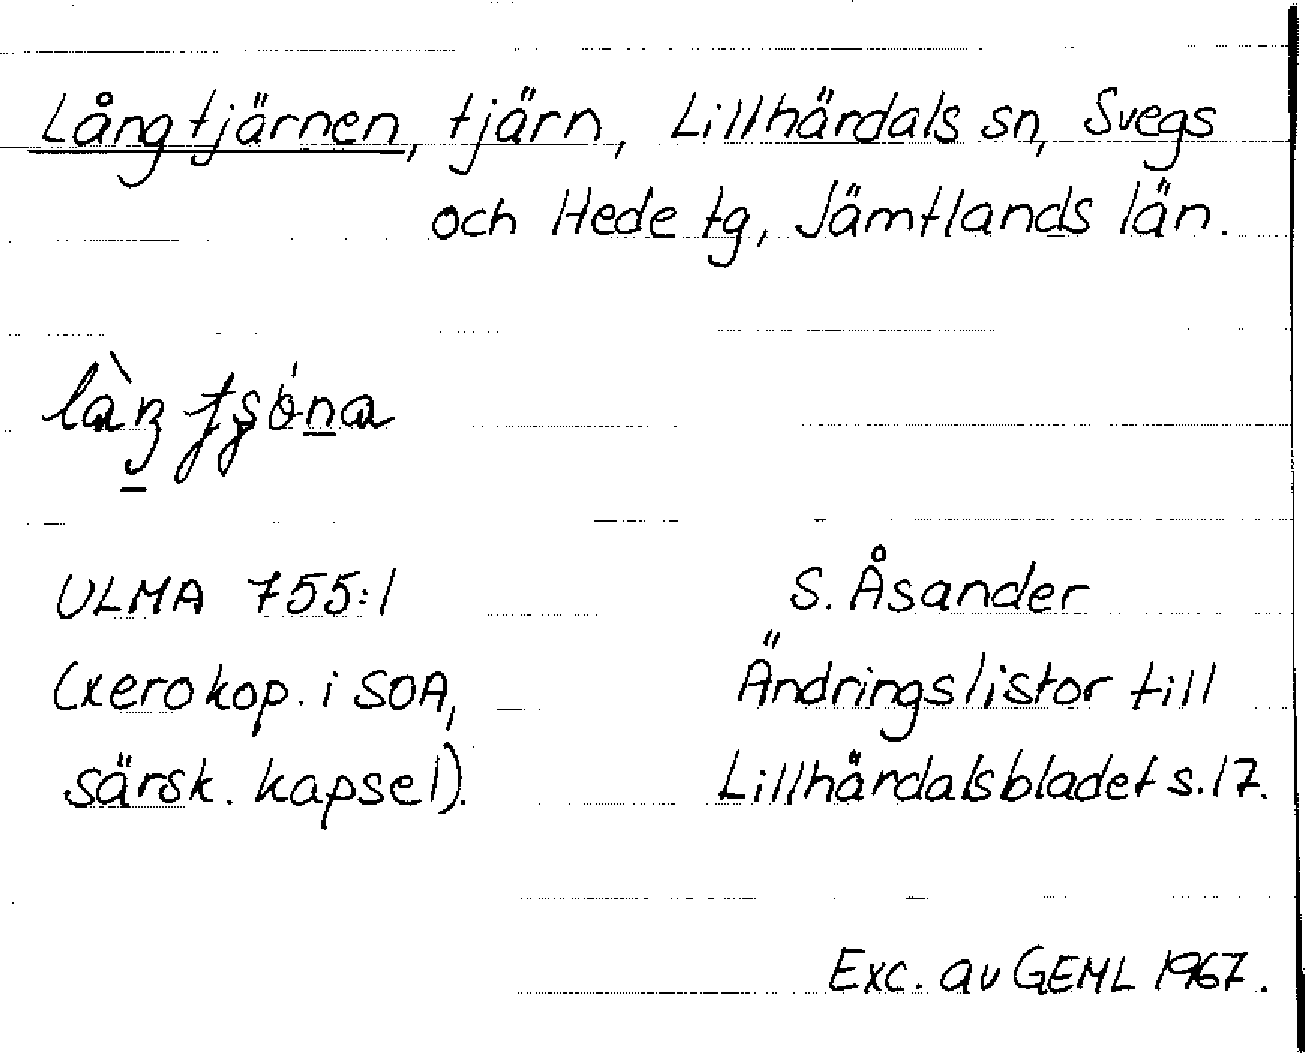 Långtjärnen, tjärn, Lillhärdals sn, Svegs
och Hede tg, Jämtlands län.
ULMA 755:1
S. Åsander
(xerokop. i SOA,
Ändringslistor till
särsk. kapsel).
Lillhärdalsbladet s.17.
Exc. av GEML 1967.